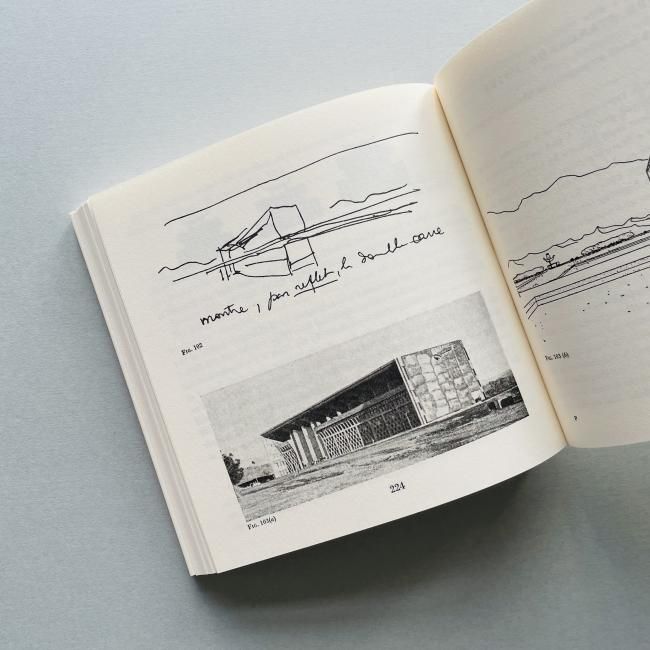 montre, par reflet, le double carre
Fig. 102
Fig. 103(a)
224
Fig. 103 (b)
P